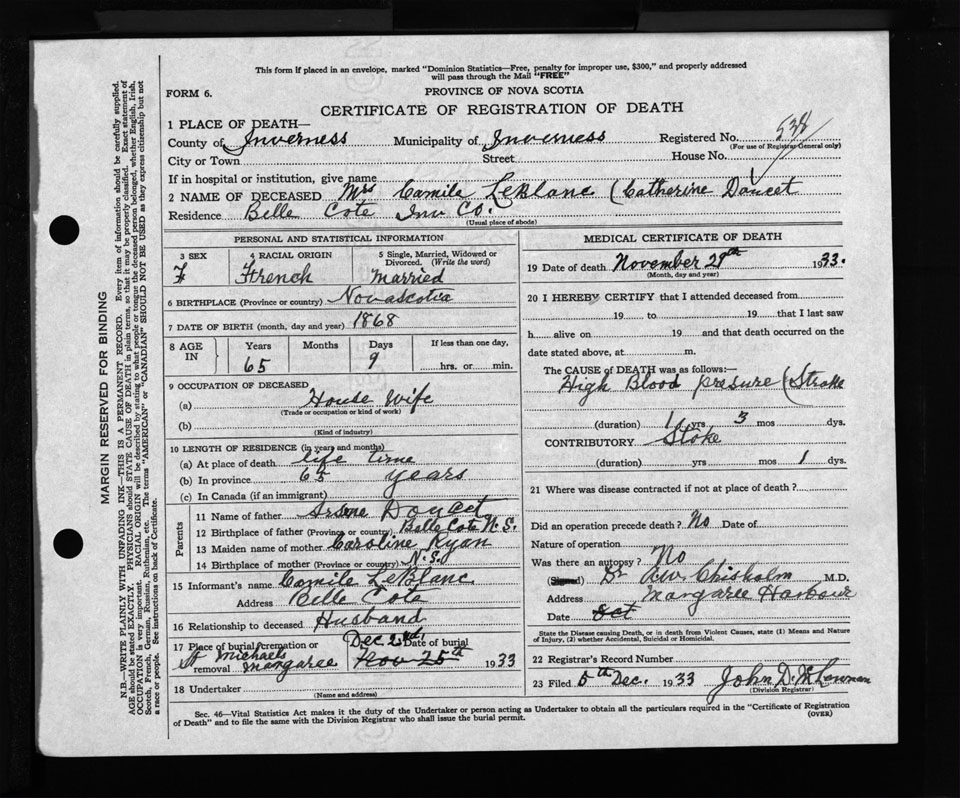 This form if placed in an envelope, marked "Dominion Statistics—Free, penalty for improper use, $300," and properly addressed
will pass through the Mail "FREE"
FORM 6.
PROVINCE OF NOVA SCOTIA
CERTIFICATE OF REGISTRATION OF DEATH
1 PLACE OF DEATH—
County of Inverness Municipality of Inverness Registered No. 538
(For use of Registrar General only)
City or Town Street House No.
If in hospital or institution, give name
2 NAME OF DECEASED Mrs Camile LeBlanc (Catherine Doucet
Residence Belle Cote Inv Co.
(Usual place of abode)
PERSONAL AND STATISTICAL INFORMATION
3 SEX
F
4 RACIAL ORIGIN
French
5 Single, Married, Widowed or
Divorced. (Write the word)
Married
6 BIRTHPLACE (Province or country) Nova scotia
7 DATE OF BIRTH (month, day and year) 1868
8 AGE
IN
Years
65
Months
Days
9
If less than one day,
hrs. or min.
9 OCCUPATION OF DECEASED
(a) House Wife
(Trade or occupation or kind of work)
(b)
(Kind of industry)
10 LENGTH OF RESIDENCE (in years and months)
(a) At place of death life time
(b) In province 65 years
(c) In Canada (if an immigrant)
Parents
11 Name of father Doucet
12 Birthplace of father (Province or country) Belle Cote N.S.
13 Maiden name of mother Caroline Ryan
14 Birthplace of mother (Province or country) N.S.
15 Informant's name Camile LeBlanc
Address Belle Cote
16 Relationship to deceased Husband
17 Place of burial, cremation or removal St Michaels Margaree
Date of burial Dec 2nd Nov 25th 1933
18 Undertaker
(Name and address)
MEDICAL CERTIFICATE OF DEATH
19 Date of death November 29th 1933.
(Month, day and year)
20 I HEREBY CERTIFY that I attended deceased from
19 to 19 that I last saw
h alive on 19 and that death occurred on the
date stated above, at m.
The CAUSE of DEATH was as follows:—
High Blood presure (Stroke
(duration) 1 yrs 3 mos dys.
CONTRIBUTORY Stoke
(duration) yrs mos 1 dys.
21 Where was disease contracted if not at place of death?
Did an operation precede death? No Date of
Nature of operation
Was there an autopsy? No
(Signed) Dr Chisholm M.D.
Address Margaree Harbour
Date Oct
State the Disease causing Death, or in death from Violent Causes, state (1) Means and Nature
of Injury, (2) whether Accidental, Suicidal or Homicidal.
22 Registrar's Record Number
23 Filed 5th Dec. 1933 John D.
(Division Registrar)
Sec. 46—Vital Statistics Act makes it the duty of the Undertaker or person acting as Undertaker to obtain all the particulars required in the "Certificate of Registration
of Death" and to file the same with the Division Registrar who shall issue the burial permit.
(OVER)
MARGIN RESERVED FOR BINDING
N.B.—WRITE PLAINLY WITH UNFADING INK—THIS IS A PERMANENT RECORD. Every item of information should be carefully supplied.
AGE should be stated EXACTLY. PHYSICIANS should STATE CAUSE OF DEATH in plain terms, so that it may be properly classified. Exact statement of
OCCUPATION is very important. RACIAL ORIGIN will be described by stating to what people or tongue the deceased person belonged, whether English, Irish,
Scotch, French, German, Russian, Ruthenian, etc. The terms "AMERICAN" or "CANADIAN" SHOULD NOT BE USED as they express citizenship but not
a race or people. See instructions on back of Certificate.